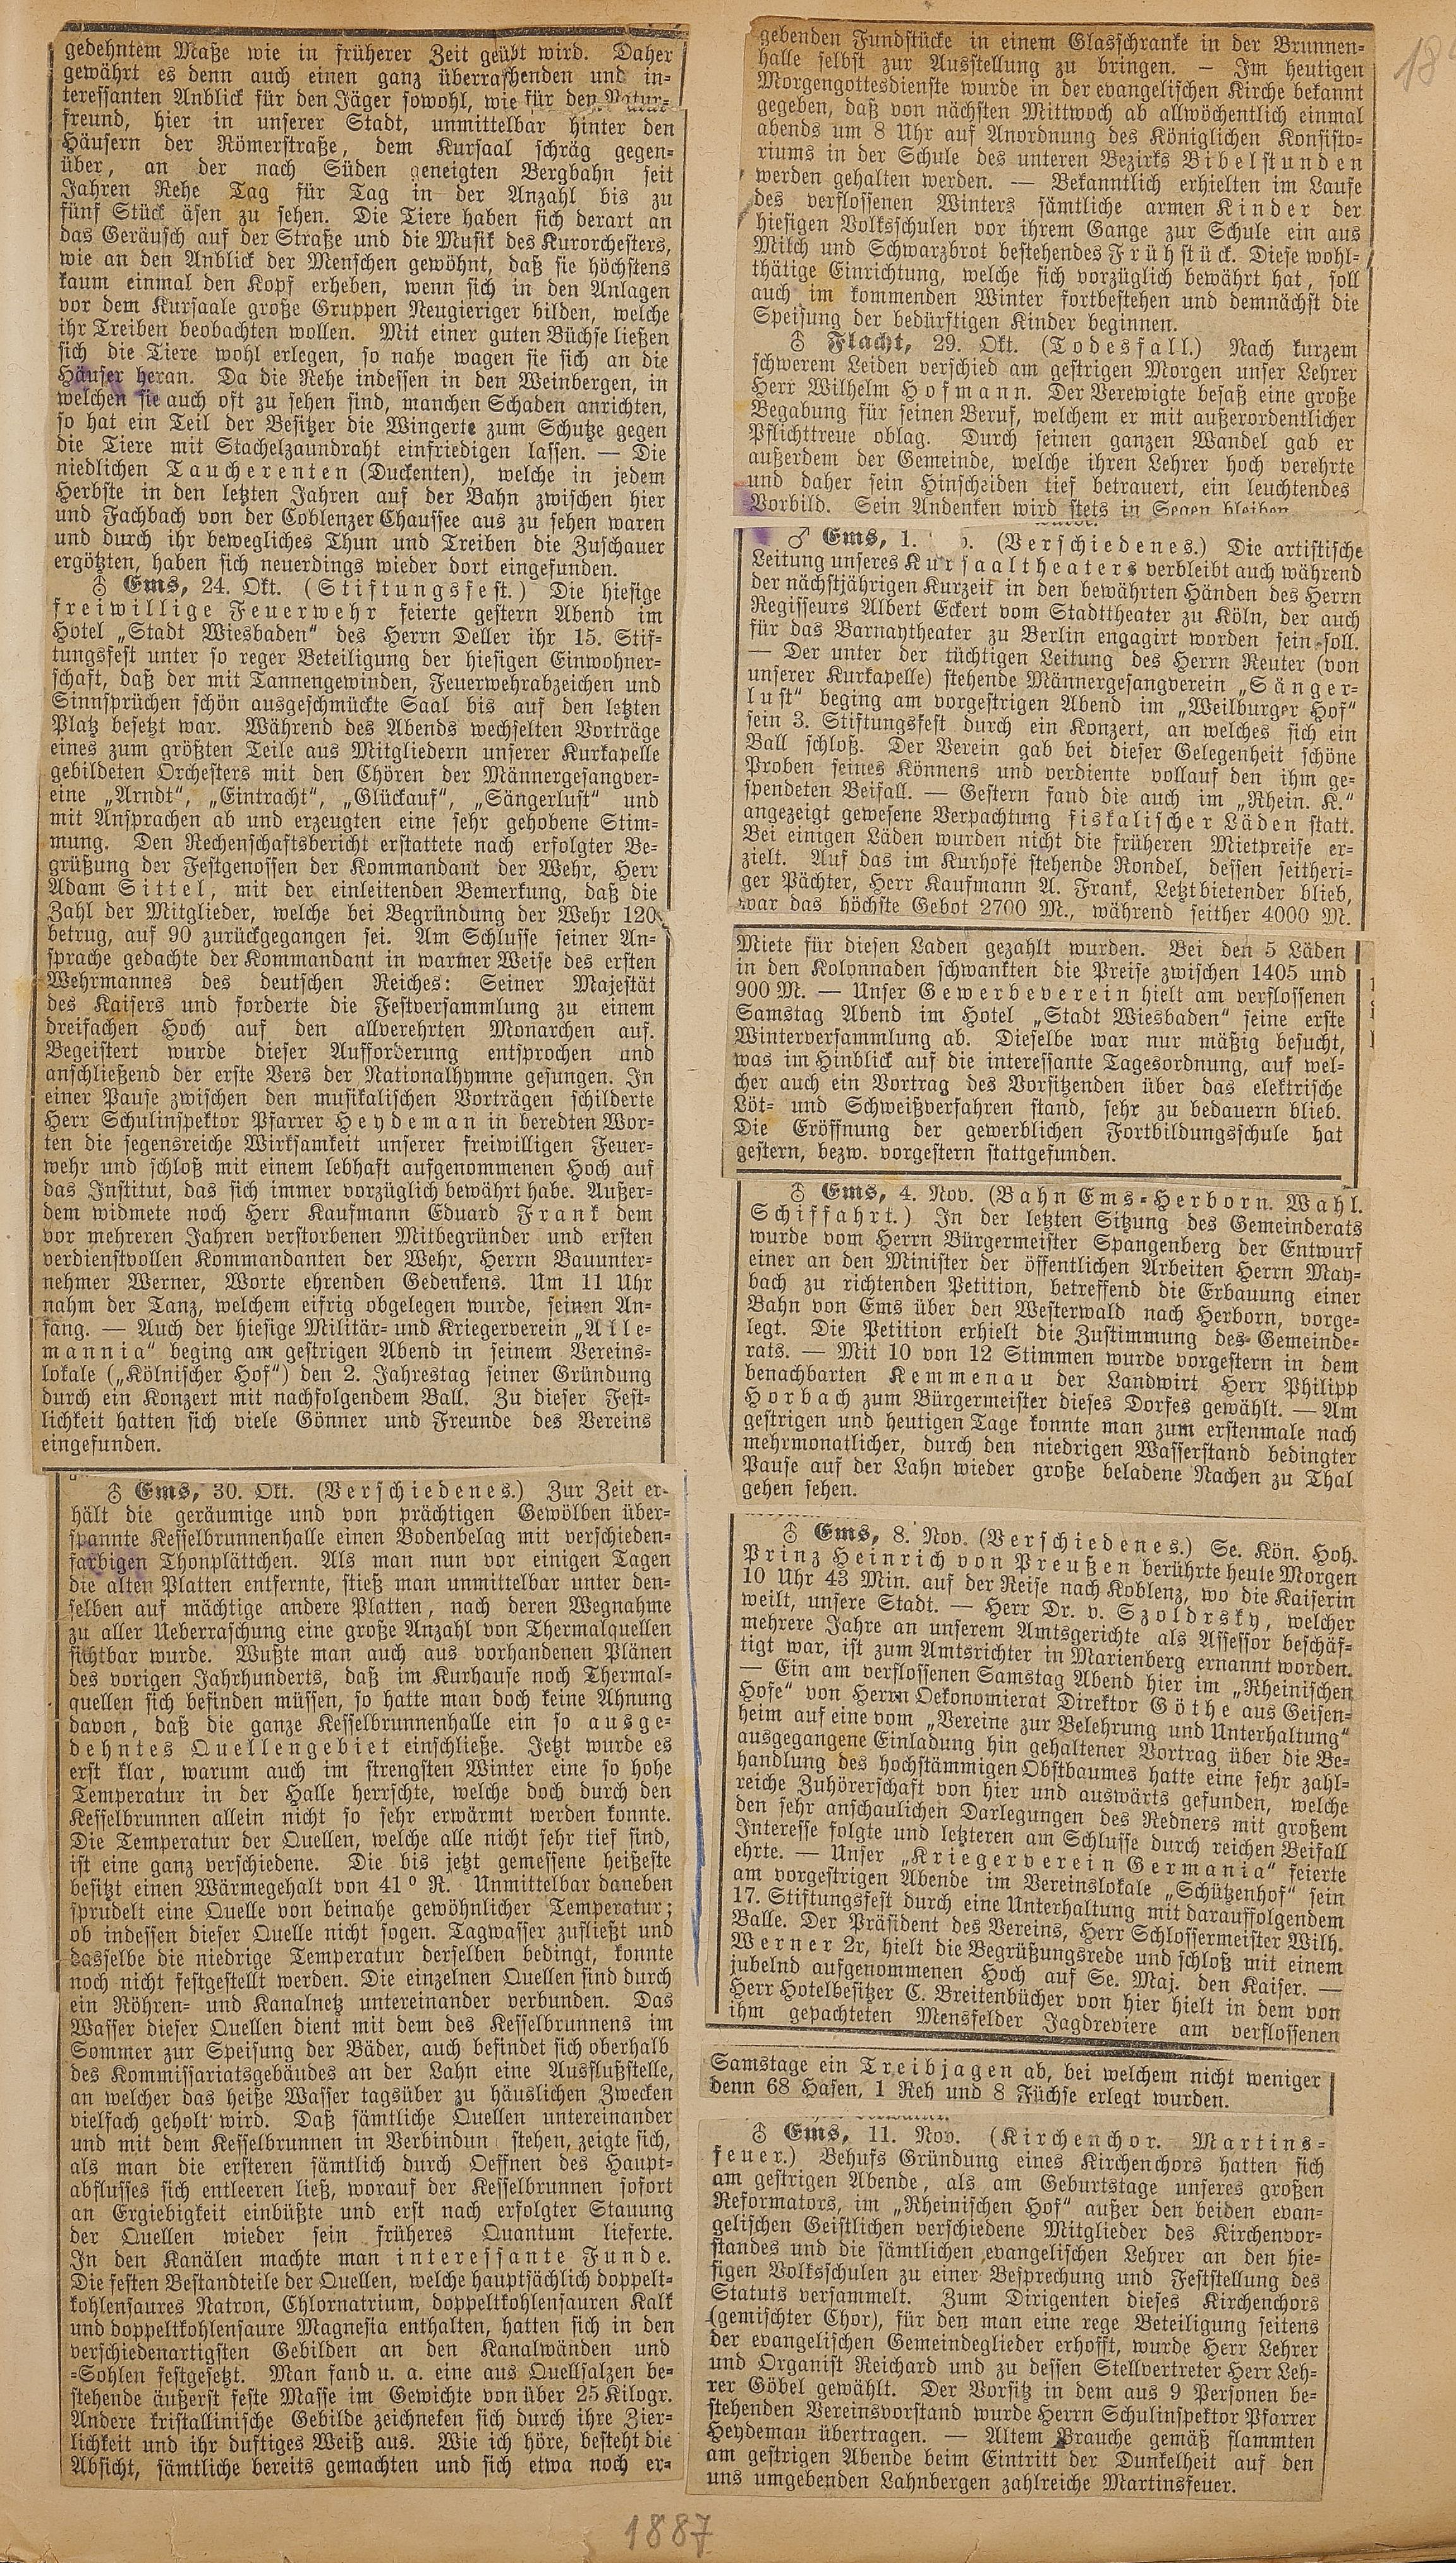 gedehntem Maße wie in früherer Zeit geübt wird. Daher
gewährt es denn auch einen ganz überraschenden und in-
teressanten Anblick für den Jäger sowohl, wie für den Natur-
freund, hier in unserer Stadt, unmittelbar hinter den
Häusern der Römerstraße, dem Kursaal schräg gegen-
über, an der nach Süden geneigten Bergbahn seit
Jahren Rehe Tag für Tag in der Anzahl bis zu
fünf Stück äsen zu sehen. Die Tiere haben sich derart an
das Geräusch auf der Straße und die Musik des Kurorchesters,
wie an den Anblick der Menschen gewöhnt, daß sie höchstens
kaum einmal den Kopf erheben, wenn sich in den Anlagen
vor dem Kursaale große Gruppen Neugieriger bilden, welche
ihr Treiben beobachten wollen. Mit einer guten Büchse ließen
sich die Tiere wohl erlegen, so nahe wagen sie sich an die
Häuser heran. Da die Rehe indessen in den Weinbergen, in
welchen sie auch oft zu sehen sind, manchen Schaden anrichten,
so hat ein Teil der Besitzer die Wingerte zum Schutze gegen
die Tiere mit Stachelzaundraht einfriedigen lassen. — Die
niedlichen Taucherenten (Duckenten), welche in jedem
Herbste in den letzten Jahren auf der Bahn zwischen hier
und Fachbach von der Coblenzer Chaussee aus zu sehen waren
und durch ihr bewegliches Thun und Treiben die Zuschauer
ergötzten, haben sich neuerdings wieder dort eingefunden.
♁ Ems, 24. Okt. (Stiftungsfest.) Die hiesige
freiwillige Feuerwehr feierte gestern Abend im
Hotel „Stadt Wiesbaden“ des Herrn Deller ihr 15. Stif-
tungsfest unter so reger Beteiligung der hiesigen Einwohner-
schaft, daß der mit Tannengewinden, Feuerwehrabzeichen und
Sinnsprüchen schön ausgeschmückte Saal bis auf den letzten
Platz besetzt war. Während des Abends wechselten Vorträge
eines zum größten Teile aus Mitgliedern unserer Kurkapelle
gebildeten Orchesters mit den Chören der Männergesangver-
eine „Arndt“, „Eintracht“, „Glückauf“, „Sängerlust“ und
mit Ansprachen ab und erzeugten eine sehr gehobene Stim-
mung. Den Rechenschaftsbericht erstattete nach erfolgter Be-
grüßung der Festgenossen der Kommandant der Wehr, Herr
Adam Sittel, mit der einleitenden Bemerkung, daß die
Zahl der Mitglieder, welche bei Begründung der Wehr 120
betrug, auf 90 zurückgegangen sei. Am Schlusse seiner An-
sprache gedachte der Kommandant in warmer Weise des ersten
Wehrmannes des deutschen Reiches: Seiner Majestät
des Kaisers und forderte die Festversammlung zu einem
dreifachen Hoch auf den allverehrten Monarchen auf.
Begeistert wurde dieser Aufforderung entsprochen und
anschließend der erste Vers der Nationalhymne gesungen. In
einer Pause zwischen den musikalischen Vorträgen schilderte
Herr Schulinspektor Pfarrer Heydeman in beredten Wor-
ten die segensreiche Wirksamkeit unserer freiwilligen Feuer-
wehr und schloß mit einem lebhaft aufgenommenen Hoch auf
das Institut, das sich immer vorzüglich bewährt habe. Außer-
dem widmete noch Herr Kaufmann Eduard Frank dem
vor mehreren Jahren verstorbenen Mitbegründer und ersten
verdienstvollen Kommandanten der Wehr, Herrn Bauunter-
nehmer Werner, Worte ehrenden Gedenkens. Um 11 Uhr
nahm der Tanz, welchem eifrig obgelegen wurde, seinen An-
fang. — Auch der hiesige Militär- und Kriegerverein „Alle-
mannia“ beging am gestrigen Abend in seinem Vereins-
lokale („Kölnischer Hof“) den 2. Jahrestag seiner Gründung
durch ein Konzert mit nachfolgendem Ball. Zu dieser Fest-
lichkeit hatten sich viele Gönner und Freunde des Vereins
eingefunden.
♁ Ems, 30. Okt. (Verschiedenes.) Zur Zeit er-
hält die geräumige und von prächtigen Gewölben über-
spannte Kesselbrunnenhalle einen Bodenbelag mit verschieden-
farbigen Thonplättchen. Als man nun vor einigen Tagen
die alten Platten entfernte, stieß man unmittelbar unter den-
selben auf mächtige andere Platten, nach deren Wegnahme
zu aller Ueberraschung eine große Anzahl von Thermalquellen
sichtbar wurde. Wußte man auch aus vorhandenen Plänen
des vorigen Jahrhunderts, daß im Kurhause noch Thermal-
quellen sich befinden müssen, so hatte man doch keine Ahnung
davon, daß die ganze Kesselbrunnenhalle ein so ausge-
dehntes Quellengebiet einschließe. Jetzt wurde es
erst klar, warum auch im strengsten Winter eine so hohe
Temperatur in der Halle herrschte, welche doch durch den
Kesselbrunnen allein nicht so sehr erwärmt werden konnte.
Die Temperatur der Quellen, welche alle nicht sehr tief sind,
ist eine ganz verschiedene. Die bis jetzt gemessene heißeste
besitzt einen Wärmegehalt von 41° R. Unmittelbar daneben
sprudelt eine Quelle von beinahe gewöhnlicher Temperatur;
ob indessen dieser Quelle nicht sogen. Tagwasser zufließt und
dasselbe die niedrige Temperatur derselben bedingt, konnte
noch nicht festgestellt werden. Die einzelnen Quellen sind durch
ein Röhren- und Kanalnetz untereinander verbunden. Das
Wasser dieser Quellen dient mit dem des Kesselbrunnens im
Sommer zur Speisung der Bäder, auch befindet sich oberhalb
des Kommissariatsgebäudes an der Lahn eine Ausflußstelle,
an welcher das heiße Wasser tagsüber zu häuslichen Zwecken
vielfach geholt wird. Daß sämtliche Quellen untereinander
und mit dem Kesselbrunnen in Verbindun stehen, zeigte sich,
als man die ersteren sämtlich durch Oeffnen des Haupt-
abflusses sich entleeren ließ, worauf der Kesselbrunnen sofort
an Ergiebigkeit einbüßte und erst nach erfolgter Stauung
der Quellen wieder sein früheres Quantum lieferte.
In den Kanälen machte man interessante Funde.
Die festen Bestandteile der Quellen, welche hauptsächlich doppelt-
kohlensaures Natron, Chlornatrium, doppeltkohlensauren Kalk
und doppeltkohlensaure Magnesia enthalten, hatten sich in den
verschiedenartigsten Gebilden an den Kanalwänden und
-Sohlen festgesetzt. Man fand u. a. eine aus Quellsalzen be-
stehende äußerst feste Masse im Gewichte von über 25 Kilogr.
Andere kristallinische Gebilde zeichneten sich durch ihre Zier-
lichkeit und ihr duftiges Weiß aus. Wie ich höre, besteht die
Absicht, sämtliche bereits gemachten und sich etwa noch er-
gebenden Fundstücke in einem Glasschranke in der Brunnen-
halle selbst zur Ausstellung zu bringen. — Im heutigen
Morgengottesdienste wurde in der evangelischen Kirche bekannt
gegeben, daß von nächsten Mittwoch ab allwöchentlich einmal
abends um 8 Uhr auf Anordnung des Königlichen Konsisto-
riums in der Schule des unteren Bezirks Bibelstunden
werden gehalten werden. — Bekanntlich erhielten im Laufe
des verflossenen Winters sämtliche armen Kinder der
hiesigen Volksschulen vor ihrem Gange zur Schule ein aus
Milch und Schwarzbrot bestehendes Frühstück. Diese wohl-
thätige Einrichtung, welche sich vorzüglich bewährt hat, soll
auch im kommenden Winter fortbestehen und demnächst die
Speisung der bedürftigen Kinder beginnen.
♁ Flacht, 29. Okt. (Todesfall.) Nach kurzem
schwerem Leiden verschied am gestrigen Morgen unser Lehrer
Herr Wilhelm Hofmann. Der Verewigte besaß eine große
Begabung für seinen Beruf, welchem er mit außerordentlicher
Pflichttreue oblag. Durch seinen ganzen Wandel gab er
außerdem der Gemeinde, welche ihren Lehrer hoch verehrte
und daher sein Hinscheiden tief betrauert, ein leuchtendes
Vorbild. Sein Andenken wird stets in Segen bleiben
♂ Ems, 1. (Verschiedenes.) Die artistische
Leitung unseres Kursaaltheaters verbleibt auch während
der nächstjährigen Kurzeit in den bewährten Händen des Herrn
Regisseurs Albert Eckert vom Stadttheater zu Köln, der auch
für das Barnaytheater zu Berlin engagirt worden sein soll.
— Der unter der tüchtigen Leitung des Herrn Reuter (von
unserer Kurkapelle) stehende Männergesangverein „Sänger-
lust“ beging am vorgestrigen Abend im „Weilburger Hof“
sein 3. Stiftungsfest durch ein Konzert, an welches sich ein
Ball schloß. Der Verein gab bei dieser Gelegenheit schöne
Proben seines Könnens und verdiente vollauf den ihm ge-
spendeten Beifall. — Gestern fand die auch im „Rhein. K.“
angezeigt gewesene Verpachtung fiskalischer Läden statt.
Bei einigen Läden wurden nicht die früheren Mietpreise er-
zielt. Auf das im Kurhofe stehende Rondel, dessen seitheri-
ger Pächter, Herr Kaufmann A. Frank, Letztbietender blieb,
war das höchste Gebot 2700 M., während seither 4000 M.
Miete für diesen Laden gezahlt wurden. Bei den 5 Läden
in den Kolonnaden schwankten die Preise zwischen 1405 und
900 M. — Unser Gewerbeverein hielt am verflossenen
Samstag Abend im Hotel „Stadt Wiesbaden“ seine erste
Winterversammlung ab. Dieselbe war nur mäßig besucht,
was im Hinblick auf die interessante Tagesordnung, auf wel-
cher auch ein Vortrag des Vorsitzenden über das elektrische
Löt- und Schweißverfahren stand, sehr zu bedauern blieb.
Die Eröffnung der gewerblichen Fortbildungsschule hat
gestern, bezw. vorgestern stattgefunden.
♁ Ems, 4. Nov. (Bahn Ems-Herborn. Wahl.
Schiffahrt.) In der letzten Sitzung des Gemeinderats
wurde vom Herrn Bürgermeister Spangenberg der Entwurf
einer an den Minister der öffentlichen Arbeiten Herrn May-
bach zu richtenden Petition, betreffend die Erbauung einer
Bahn von Ems über den Westerwald nach Herborn, vorge-
legt. Die Petition erhielt die Zustimmung des Gemeinde-
rats. — Mit 10 von 12 Stimmen wurde vorgestern in dem
benachbarten Kemmenau der Landwirt Herr Philipp
Horbach zum Bürgermeister dieses Dorfes gewählt. — Am
gestrigen und heutigen Tage konnte man zum erstenmale nach
mehrmonatlicher, durch den niedrigen Wasserstand bedingter
Pause auf der Lahn wieder große beladene Nachen zu Thal
gehen sehen.
♁ Ems, 8. Nov. (Verschiedenes.) Se. Kön. Hoh.
Prinz Heinrich von Preußen berührte heute Morgen
10 Uhr 43 Min. auf der Reise nach Koblenz, wo die Kaiserin
weilt, unsere Stadt. — Herr Dr. v. Szoldrsky, welcher
mehrere Jahre an unserem Amtsgerichte als Assessor beschäf-
tigt war, ist zum Amtsrichter in Marienberg ernannt worden.
— Ein am verflossenen Samstag Abend hier im „Rheinischen
Hofe“ von Herrn Oekonomierat Direktor Göthe aus Geisen-
heim auf eine vom „Vereine zur Belehrung und Unterhaltung“
ausgegangene Einladung hin gehaltener Vortrag über die Be-
handlung des hochstämmigen Obstbaumes hatte eine sehr zahl-
reiche Zuhörerschaft von hier und auswärts gefunden, welche
den sehr anschaulichen Darlegungen des Redners mit großem
Interesse folgte und letzteren am Schlusse durch reichen Beifall
ehrte. — Unser „Kriegerverein Germania“ feierte
am vorgestrigen Abende im Vereinslokale „Schützenhof“ sein
17. Stiftungsfest durch eine Unterhaltung mit darauffolgendem
Balle. Der Präsident des Vereins, Herr Schlossermeister Wilh.
Werner 2r, hielt die Begrüßungsrede und schloß mit einem
jubelnd aufgenommenen Hoch auf Se. Maj. den Kaiser. —
Herr Hotelbesitzer C. Breitenbücher von hier hielt in dem von
ihm gepachteten Mensfelder Jagdreviere am verflossenen
Samstage ein Treibjagen ab, bei welchem nicht weniger
denn 68 Hasen, 1 Reh und 8 Füchse erlegt wurden.
♁ Ems, 11. Nov. (Kirchenchor. Martins-
feuer.) Behufs Gründung eines Kirchenchors hatten sich
am gestrigen Abende, als am Geburtstage unseres großen
Reformators, im „Rheinischen Hof“ außer den beiden evan-
gelischen Geistlichen verschiedene Mitglieder des Kirchenvor-
standes und die sämtlichen evangelischen Lehrer an den hie-
sigen Volksschulen zu einer Besprechung und Feststellung des
Statuts versammelt. Zum Dirigenten dieses Kirchenchors
(gemischter Chor), für den man eine rege Beteiligung seitens
der evangelischen Gemeindeglieder erhofft, wurde Herr Lehrer
und Organist Reichard und zu dessen Stellvertreter Herr Leh-
rer Göbel gewählt. Der Vorsitz in dem aus 9 Personen be-
stehenden Vereinsvorstand wurde Herrn Schulinspektor Pfarrer
Heydeman übertragen. — Altem Brauche gemäß flammten
am gestrigen Abende beim Eintritt der Dunkelheit auf den
uns umgebenden Lahnbergen zahlreiche Martinsfeuer.
1887